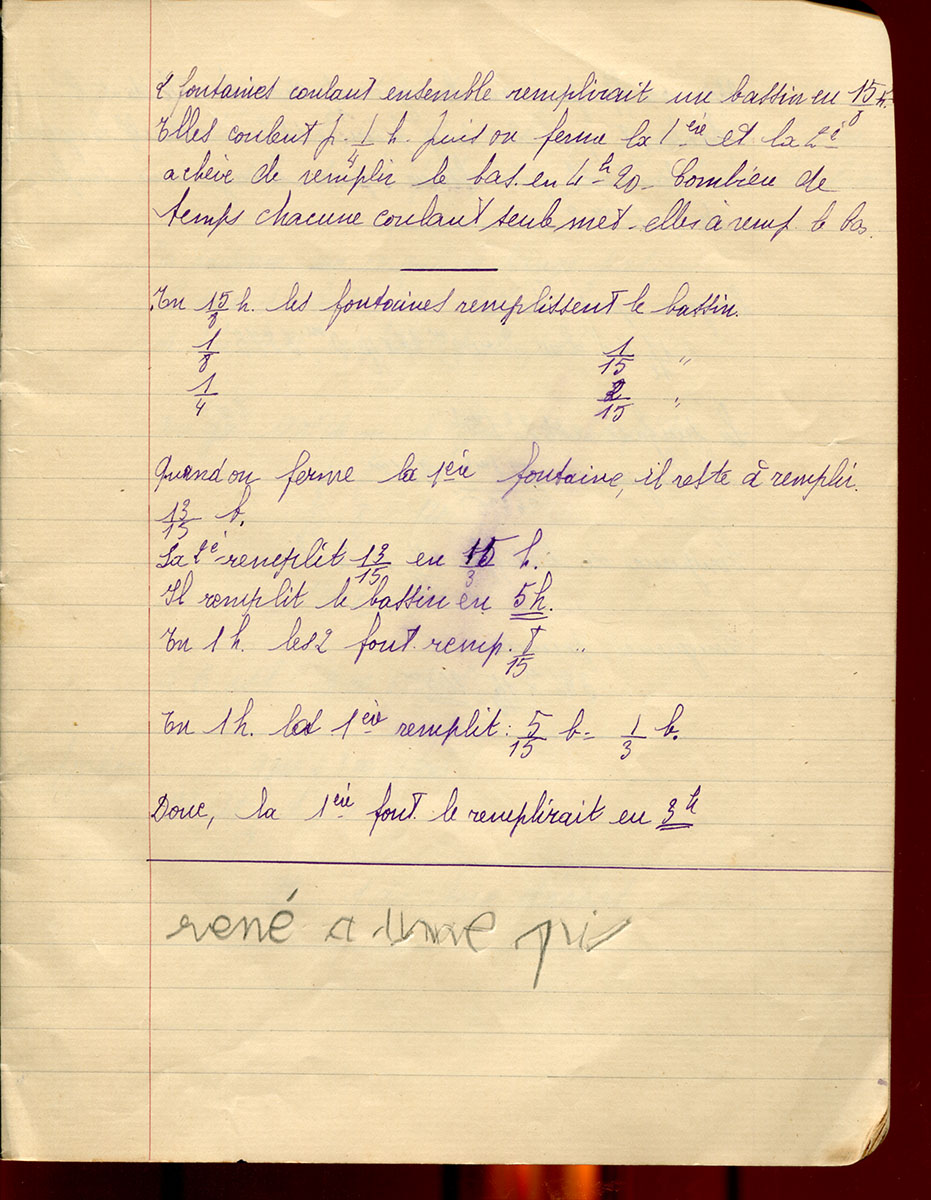 2 fontaines coulant ensemble remplirait un bassin en 15/8 h.
Elles coulent p. 1/4 h. puis on ferme la 1ère et la 2è
achève de remplir le bas. en 4h20. Combien de
temps chacune coulant seule met-elles à remp. le bas.
En 15/8 h. les fontaines remplissent le bassin.
1/8 1/15 "
1/4 2/15 "
Quand on ferme la 1ère fontaine, il reste à remplir.
13/15 b.
La 2è remplit 13/15 en 15/3 h.
Il remplit le bassin en 5h.
En 1 h. les 2 font. remp. 8/15 "
En 1 h. la 1ère remplit : 5/15 b = 1/3 b.
Donc, la 1ère font. le remplirait en 3h
rené a une pi